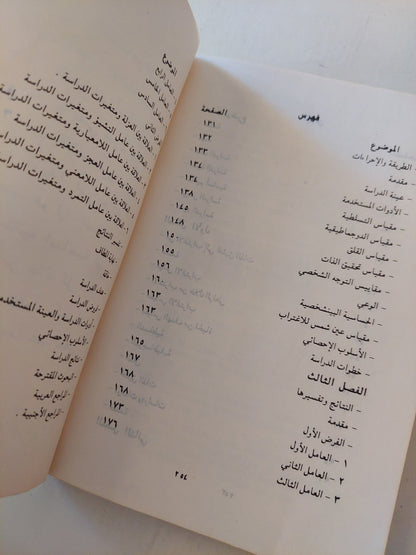 فهرس
الموضوع
- الطريقة والإجراءات
- مقدمة
- عينة الدراسة
- الأدوات المستخدمة
- مقياس التسلطية
- مقياس الدوجماطيقية
- مقياس القلق
- مقياس تحقيق الذات
- مقاييس التوجه الشخصي
- الوعي
- الحساسية البينشخصية
- مقياس عين شمس للاغتراب
- الأسلوب الإحصائي
- خطوات الدراسة
الفصل الثالث
- النتائج وتفسيرها
- مقدمة
- الفرض الأول
١ - العامل الأول
٢ - العامل الثاني
٣ - العامل الثالث
الصفحة
١٣١
١٣٢
١٣٣
١٣٤
١٣٤
١٣٨
١٤٥
١٤٨
١٥٠
١٥٥
١٥٦
١٦٠
١٦٣
١٦٣
١٦٥
١٦٧
١٦٨
١٦٨
١٧٣
١٧٦
٢٥٤
الموضوع
العلاقة بين العزلة ومتغيرات الدراسة .
العلاقة بين عامل التشيؤ ومتغيرات الدراسة
العلاقة بين عامل اللامعيارية ومتغيرات الدراسة
العلاقة بين عامل العجز ومتغيرات الدراسة
العلاقة بين عامل اللامعنى ومتغيرات الدراسة
العلاقة بين عامل التمرد ومتغيرات الدراسة
تفسير النتائج
نهاية المطاف
- هدف الدراسة
- فروض الدراسة
- أدوات الدراسة والعينة المستخدمة
- الأسلوب الإحصائي
- نتائج الدراسة
- البحوث المقترحة
- المراجع العربية
- المراجع الأجنبية .